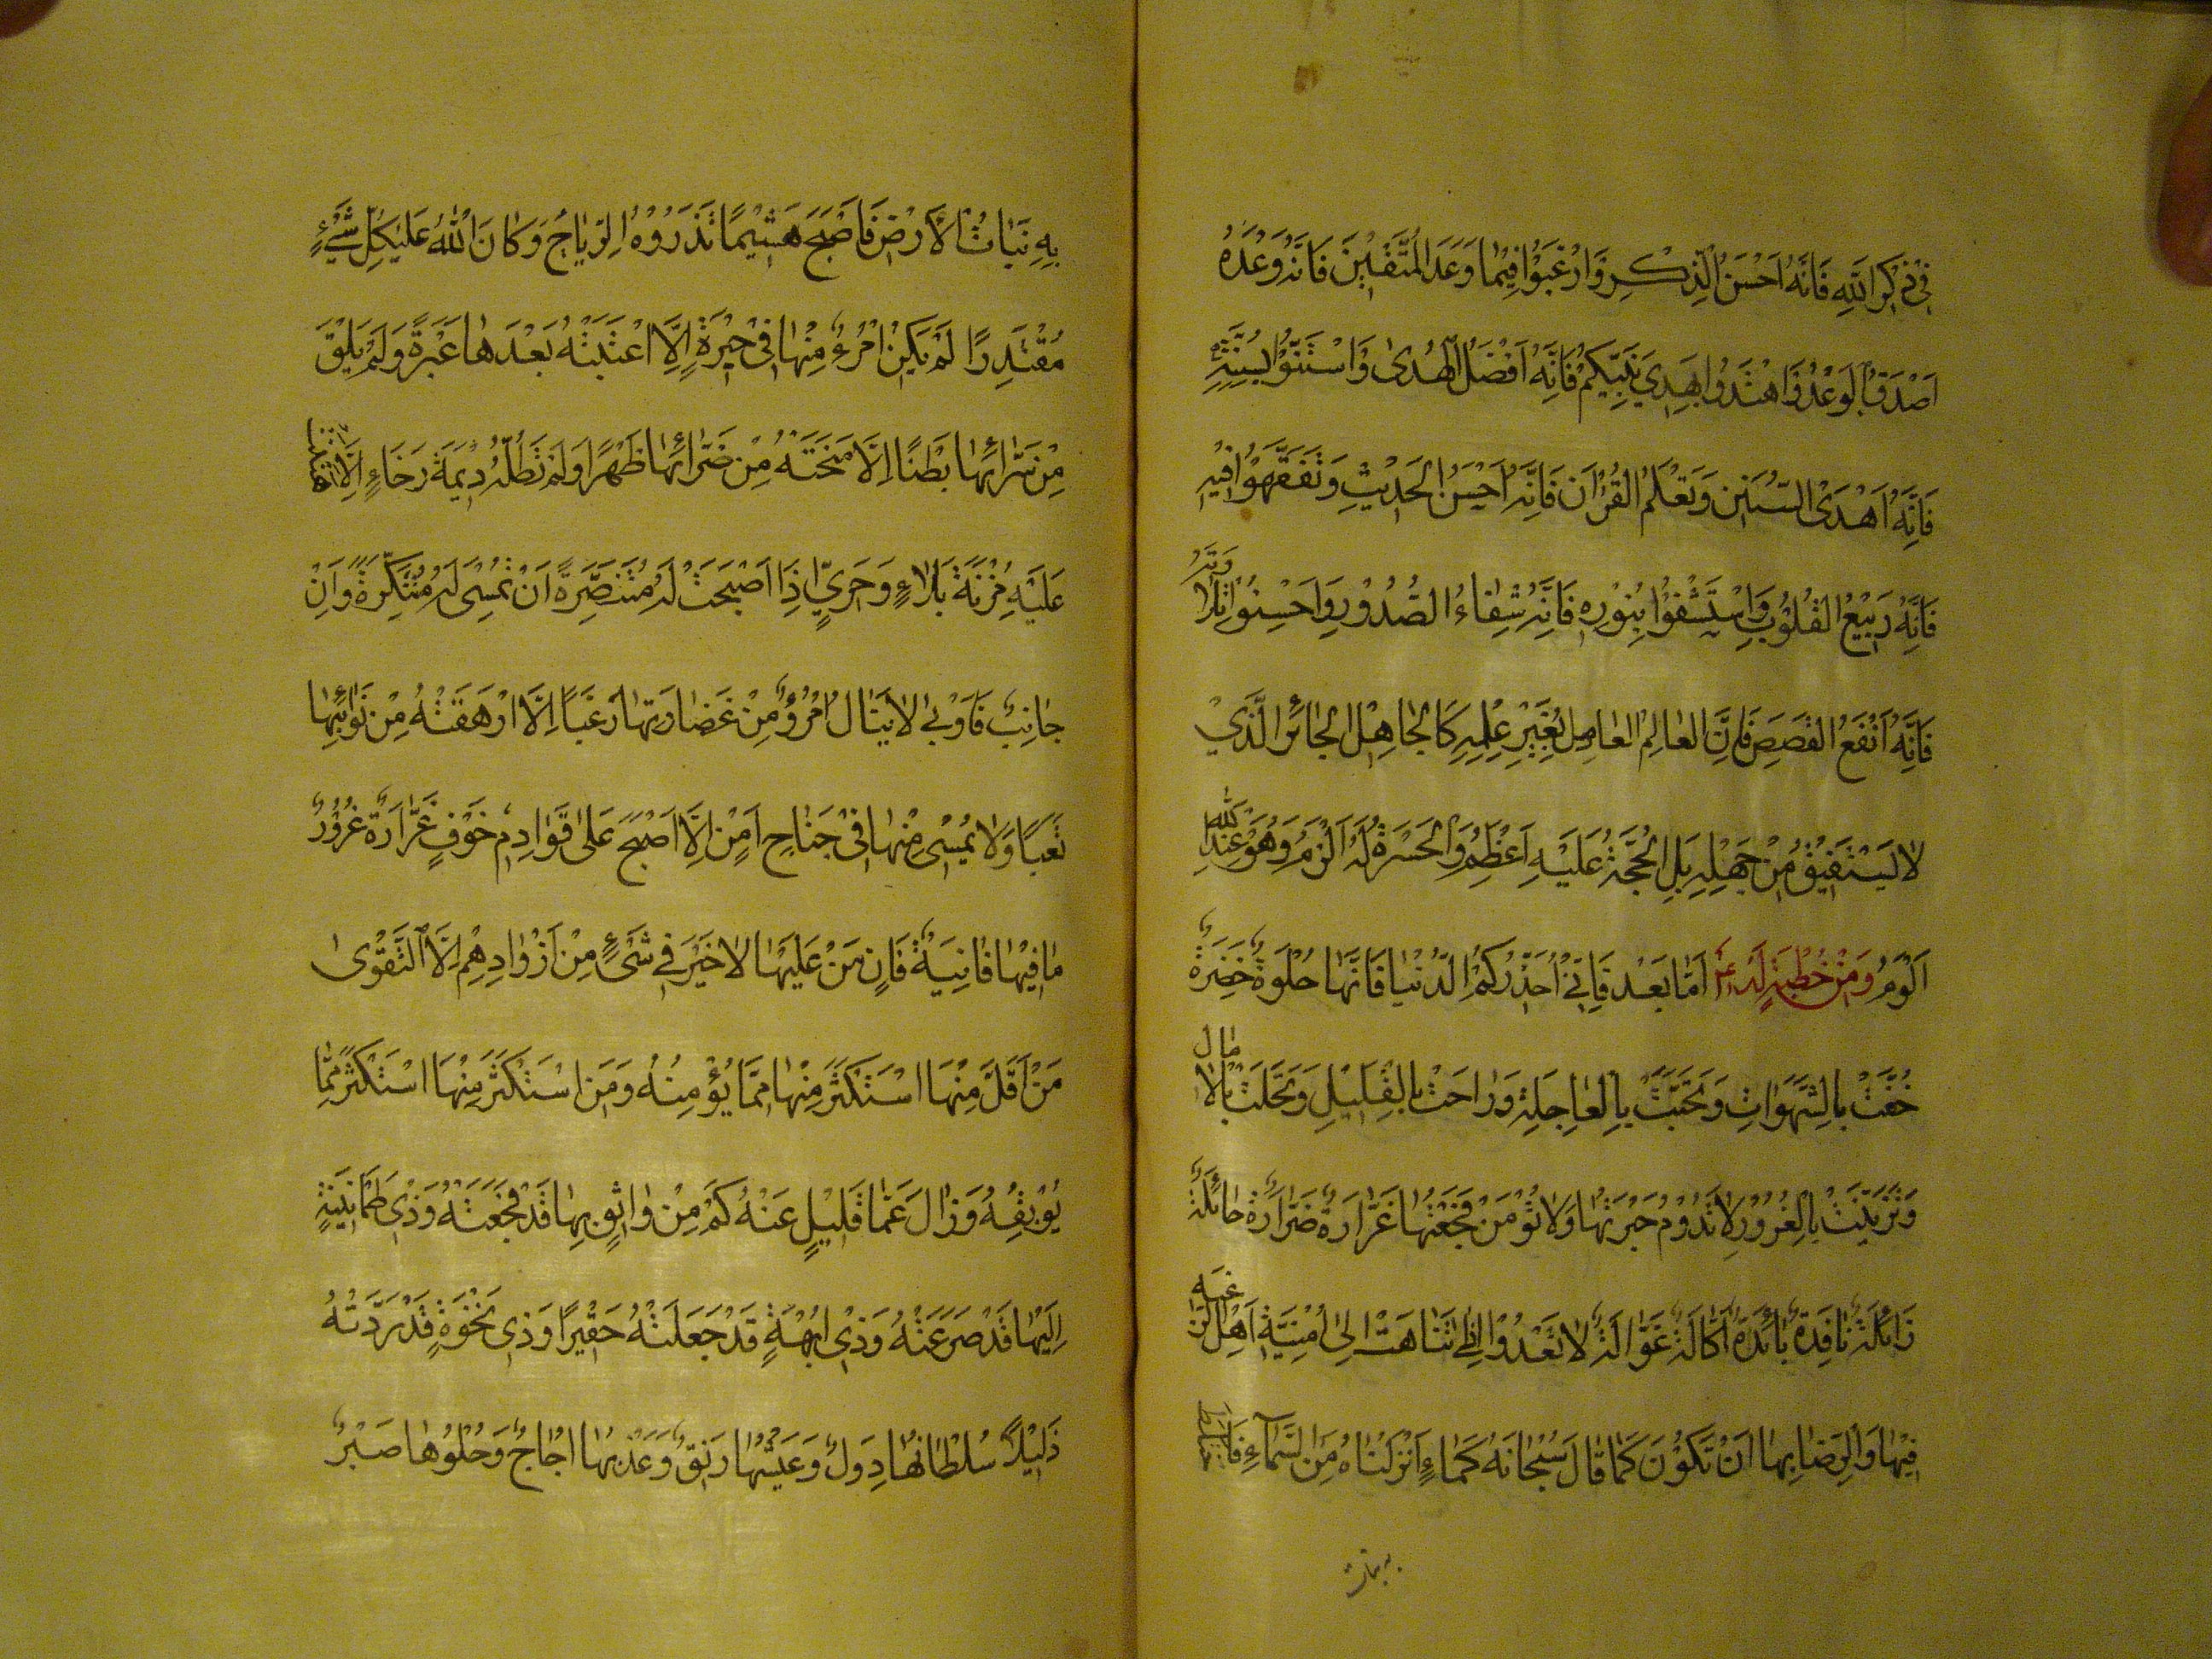 فِي ذِكْرِ اللهِ فَاِنَّهُ اَحْسَنُ الذِّكْرِ وَارْغَبُوْا فِيْمَا وَعَدَ الْمُتَّقِيْنَ فَاِنَّ وَعْدَهُ
اَصْدَقُ الْوَعْدِ وَاهْتَدُوْا بِهَدْيِ نَبِيِّكُمْ فَاِنَّهُ اَفْضَلُ الْهُدىٰ وَاسْتَنُّوْا بِسُنَّتِهِ
فَاِنَّهَا اَهْدَى السُّنَنِ وَتَعَلَّمُوا الْقُرْاٰنَ فَاِنَّهُ اَحْسَنُ الْحَدِيْثِ وَتَفَقَّهُوْا فِيْهِ
فَاِنَّهُ رَبِيْعُ الْقُلُوْبِ وَاسْتَشْفُوْا بِنُوْرِهِ فَاِنَّهُ شِفَاءُ الصُّدُوْرِ وَاَحْسِنُوْا تِلَاوَتَهُ
فَاِنَّهُ اَنْفَعُ الْقَصَصِ فَاِنَّ الْعَالِمَ الْعَامِلَ بِغَيْرِ عِلْمِهِ كَالْجَاهِلِ الْجَائِرِ الَّذِيْ
لَا يَسْتَفِيْقُ مِنْ جَهْلِهِ بَلِ الْحُجَّةُ عَلَيْهِ اَعْظَمُ وَالْحَسْرَةُ لَهُ اَلْزَمُ وَهُوَ عِنْدَ اللهِ
اَلْوَمُ وَمِنْ خُطْبَةٍ لَهُ ع اَمَّا بَعْدُ فَاِنِّيْ اُحَذِّرُكُمُ الدُّنْيَا فَاِنَّهَا حُلْوَةٌ خَضِرَةٌ
حُفَّتْ بِالشَّهَوَاتِ وَتَحَبَّبَتْ بِالْعَاجِلَةِ وَرَاحَتْ بِالْقَلِيْلِ وَتَحَلَّتْ بِالْاٰمَالِ
وَتَزَيَّنَتْ بِالْغُرُوْرِ لَا تَدُوْمُ حَبْرَتُهَا وَلَا تُؤْمَنُ فَجْعَتُهَا غَرَّارَةٌ ضَرَّارَةٌ حَائِلَةٌ
زَائِلَةٌ نَافِدَةٌ بَائِدَةٌ اَكَّالَةٌ غَوَّالَةٌ لَا تَعْدُوْ اِذَا تَنَاهَتْ اِلىٰ اُمْنِيَّةِ اَهْلِ الرَّغْبَةِ
فِيْهَا وَالرِّضَا بِهَا اَنْ تَكُوْنَ كَمَا قَالَ سُبْحَانَهُ كَمَاءٍ اَنْزَلْنَاهُ مِنَ السَّمَآءِ فَاخْتَلَطَ
بِهِ نَبَاتُ الْاَرْضِ فَاَصْبَحَ هَشِيْمًا تَذْرُوْهُ الرِّيَاحُ وَكَانَ اللهُ عَلىٰ كُلِّ شَيْءٍ
مُقْتَدِرًا لَمْ يَكُنِ امْرُءٌ مِنْهَا فِيْ حَبْرَةٍ اِلَّا اَعْقَبَتْهُ بَعْدَهَا عَبْرَةً وَلَمْ يَلْقَ
مِنْ سَرَّائِهَا بَطْنًا اِلَّا مَنَحَتْهُ مِنْ ضَرَّائِهَا ظَهْرًا وَلَمْ تَطُلَّهُ دِيْمَةُ رَخَاءٍ اِلَّا هَتَنَتْ
عَلَيْهِ مُزْنَةُ بَلَاءٍ وَحَرِيٌّ اِذَا اَصْبَحَتْ لَهُ مُنْتَصِرَةً اَنْ تُمْسِيَ لَهُ مُتَنَكِّرَةً وَاِنْ
جَانِبٌ فَاَوْبىٰ لَا يَنَالُ امْرُؤٌ مِنْ غَضَارَتِهَا رَغَبًا اِلَّا اَرْهَقَتْهُ مِنْ نَوَائِبِهَا
تَعَبًا وَلَا يُمْسِيْ مِنْهَا فِيْ جَنَاحِ اَمْنٍ اِلَّا اَصْبَحَ عَلىٰ قَوَادِمِ خَوْفٍ غَرَّارَةٌ غُرُوْرٌ
مَا فِيْهَا فَانِيَةٌ فَانٍ مَنْ عَلَيْهَا لَا خَيْرَ فِيْ شَيْءٍ مِنْ اَزْوَادِهِمْ اِلَّا التَّقْوىٰ
مَنْ اَقَلَّ مِنْهَا اسْتَكْثَرَ مِنْهَا مِمَّا يُؤْمِنُهُ وَمَنِ اسْتَكْثَرَ مِنْهَا اسْتَكْثَرَ مِمَّا
يُوْبِقُهُ وَزَالَ عَمَّا قَلِيْلٍ عَنْهُ كَمْ مِنْ وَاثِقٍ بِهَا قَدْ فَجَعَتْهُ وَذِيْ طُمَانِيْنَةٍ
اِلَيْهَا قَدْ صَرَعَتْهُ وَذِيْ اُبَّهَةٍ قَدْ جَعَلَتْهُ حَقِيْرًا وَذِيْ نَخْوَةٍ قَدْ رَدَّتْهُ
ذَلِيْلًا سُلْطَانُهَا دِوَلٌ وَعَيْشُهَا رَنِقٌ وَعَذْبُهَا اُجَاجٌ وَحُلْوُهَا صَبْرٌ